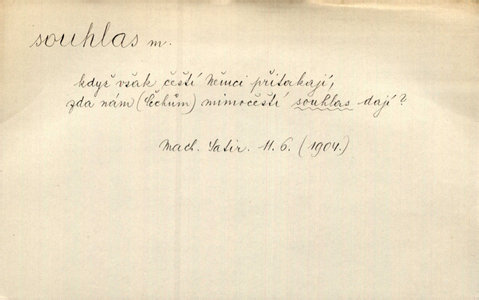 souhlas m.
když však čeští Němci přitakají,
zda nám (Čechům) mimočeští souhlas dají?
Mach. Satir. 11.6. (1904.)